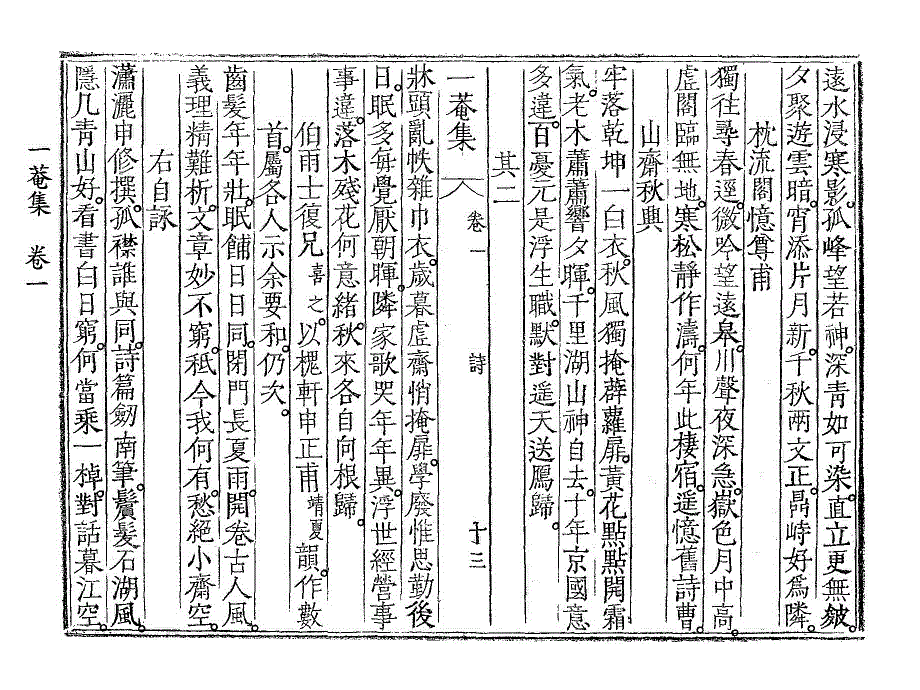 遠水浸寒影。孤峰望若神。深青如可染。直立更無皴。
夕聚遊雲暗。宵添片月新。千秋兩文正。昻峙好爲隣。
枕流閣憶尊甫
獨往尋春逕。微吟望遠臯。川聲夜深急。嶽色月中高。
虛閣臨無地。寒松靜作濤。何年此棲宿。遥憶舊詩曹。
山齋秋興
牢落乾坤一白衣。秋風獨掩薜蘿扉。黃花點點開霜
氣。老木蕭蕭響夕暉。千里湖山神自去。十年京國意
多違。百憂元是浮生職。默對遥天送鴈歸。
其二
一菴集 卷一 詩 十三
牀頭亂帙雜巾衣。歲暮虛齋悄掩扉。學廢惟思勤後
日。眠多每覺厭朝暉。隣家歌哭年年異。浮世經營事
事違。落木殘花何意緖。秋來各自向根歸。
伯雨士復兄喜之。以槐軒申正甫靖夏韻。作數
首。屬各人示余要和。仍次。
齒髮年年壯。眠餔日日同。閉門長夏雨。開卷古人風。
義理精難析。文章妙不窮。秖今我何有。愁絕小齋空。
右自詠
瀟灑申修撰。孤襟誰與同。詩篇劒南筆。鬢髮石湖風。
隱几靑山好。看書白日窮。何當乘一棹。對話暮江空。
一菴集 卷一